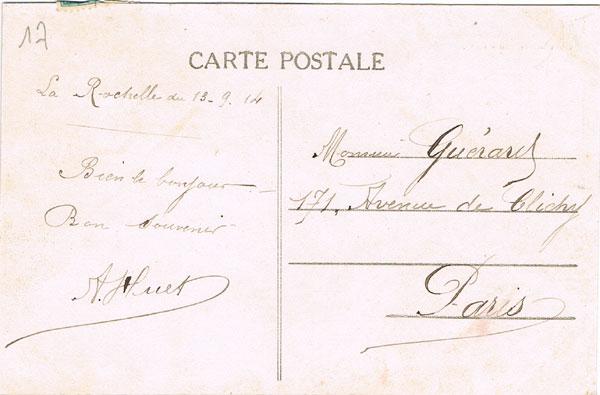 17
CARTE POSTALE
La Rochelle du 13-9-14
Bien le bonjour
Bon souvenir
A. Huet
Monsieur Guérard
171, Avenue de Clichy
Paris